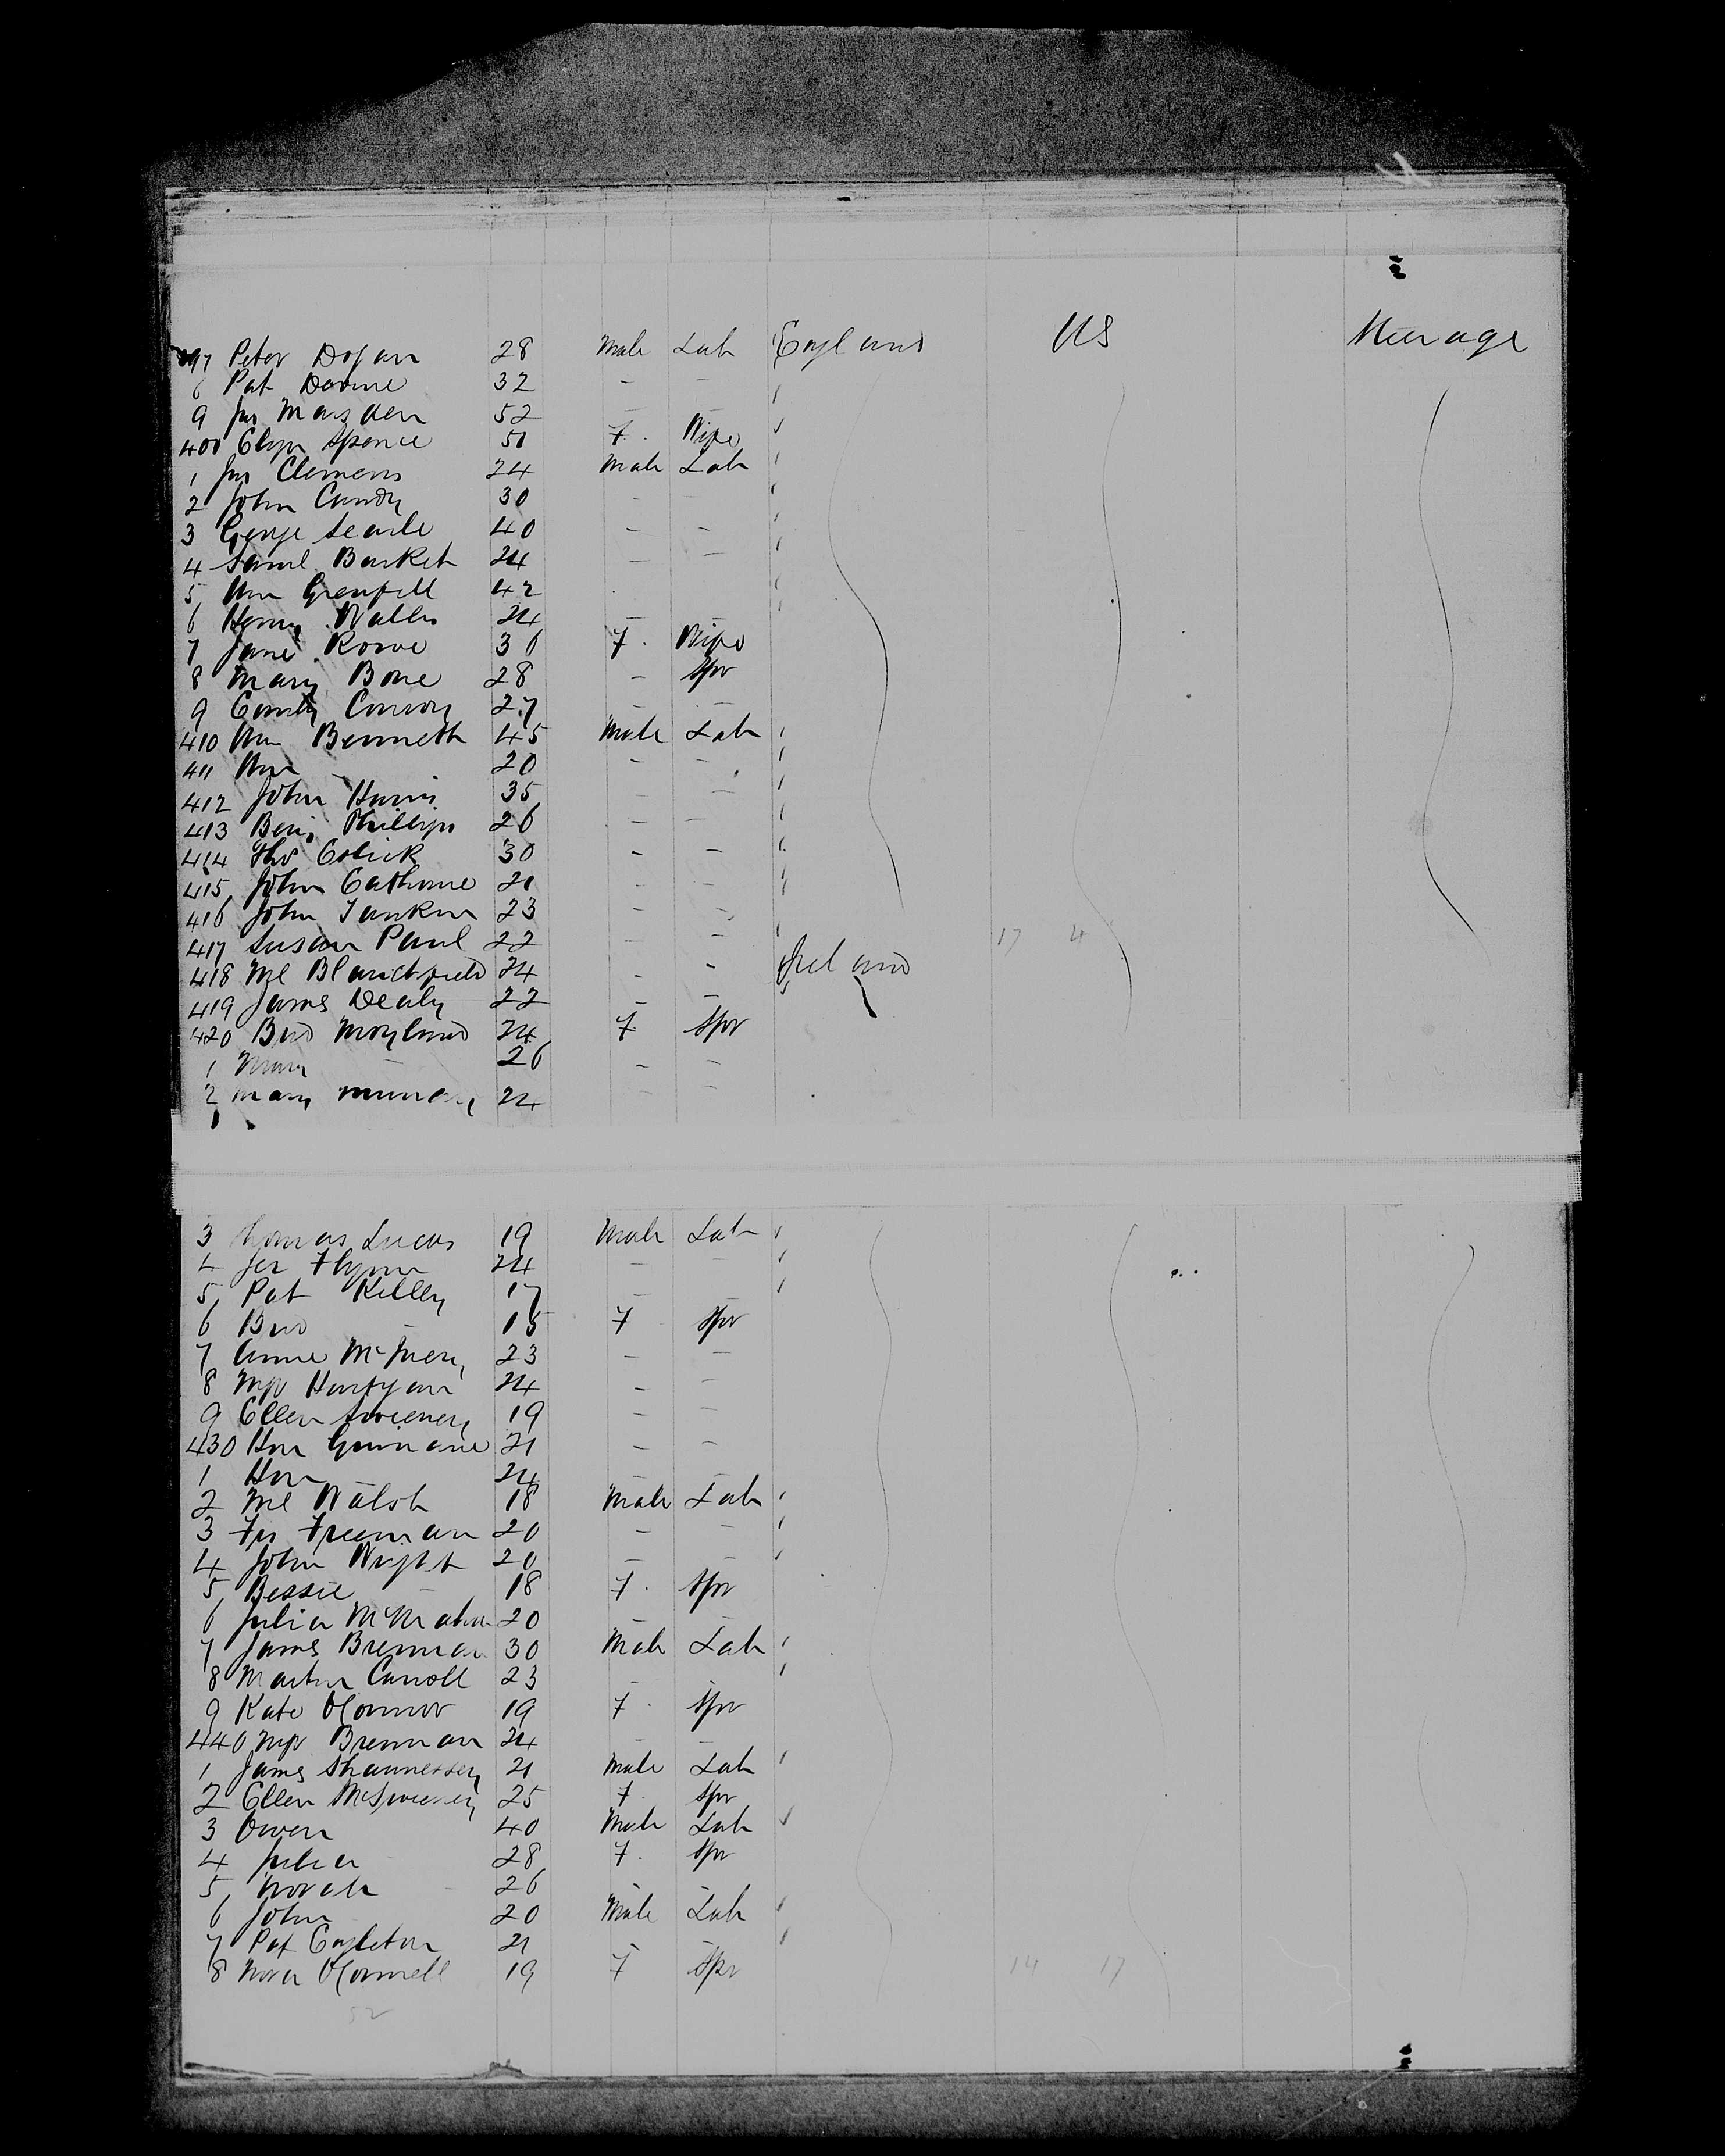 97 Peter Dojan 28 Male Lab England US Steerage
8 Pat Devine 32 - -
9 Jas Marsden 52 - -
400 Elizn Spence 51 F. Wife
1 Jas Clemens 24 Male Lab
2 John Cundy 30 - -
3 George Searle 40 - -
4 Saml. Barket 24 - -
5 Wm Grenfell 42
6 Henry Wallis 24 - -
7 Jane Rowe 36 F. Wife
8 Mary Bone 28 - Spr
9 Conroy 27 - -
410 Wm Bennett 45 Male Lab
411 Wm 20 - -
412 John Harris 35 - -
413 Benj Phillips 26 - -
414 Tho 30 - -
415 John 21 - -
416 John Tankin 23 - -
417 Susan Paul 22 - - 17 4
418 Ml Blanchfield 24 - - Ireland
419 James Dealy 22 - -
420 Brid 24 F Spr
1 Mary - 26 - -
2 Mary Murray 24 - -
3 Thomas Lucas 19 Male Lab
4 Jer Flynn 24 - -
5 Pat Killey 17 - -
6 Brid - 15 F Spr
7 Anne 23 - -
8 Mgt Hartigan 24 - -
9 Ellen Sweeney 19 - -
430 Hon Guinane 21 - -
1 Hon - 24 - -
2 Ml Walsh 18 Male Lab
3 Freeman 20 - -
4 John Wright 20 - -
5 Bessie - 18 F. Spr
6 Julia McMahon 20 - -
7 James Brennan 30 Male Lab
8 Martin Carroll 23 - -
9 Kate OConnor 19 F. Spr
440 Mgt Brennan 24 - -
1 James Shaunessey 21 Male Lab
2 Ellen McSweeney 25 F. Spr
3 Owen 40 Male Lab
4 Julia - 28 F. Spr
5 Norah - 26 - -
6 John - 20 Male Lab
7 Pat Eagleton 21 - -
8 Nora OConnell 19 F Spr 14 17
52